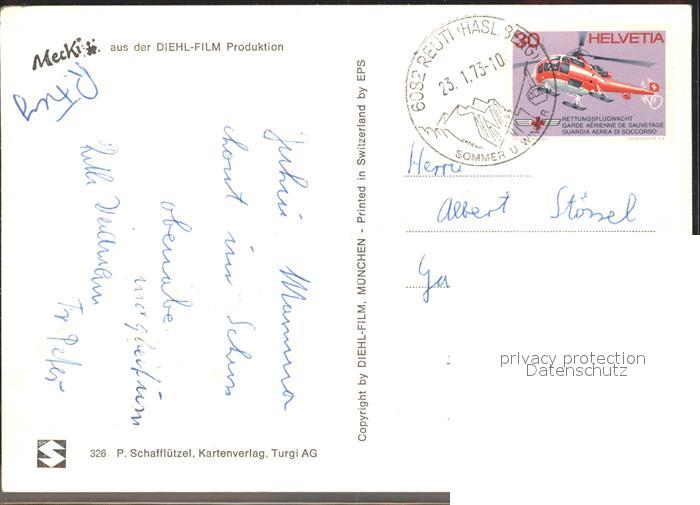 Mecki aus der DIEHL-FILM Produktion
Juhui Mamma
chont im Schuss
obenabe
Ruth
Peter
326 P. Schafflützel, Kartenverlag, Turgi AG
Copyright by DIEHL-FILM, MÜNCHEN - Printed in Switzerland by EPS
6082 REUTI (HASLIBERG)
23.1.73-10
SOMMER U. WINTER
30 HELVETIA
RETTUNGSFLUGWACHT
GARDE AÉRIENNE DE SAUVETAGE
GUARDIA AEREA DI SOCCORSO
Herrn
Albert Stössel
privacy protection
Datenschutz